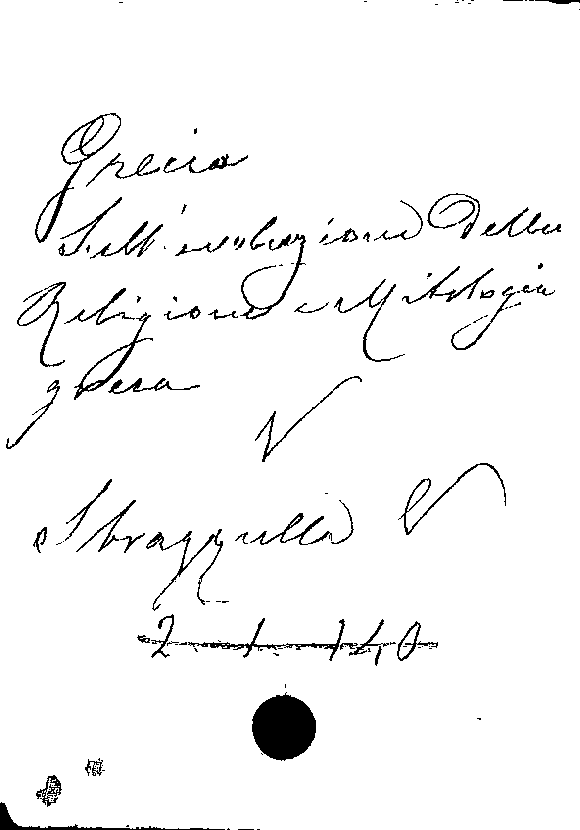 Grecia
Sull'evoluzione della
Religione e Mitologia
greca
V
Sbrazzullo V
2. 1. 140